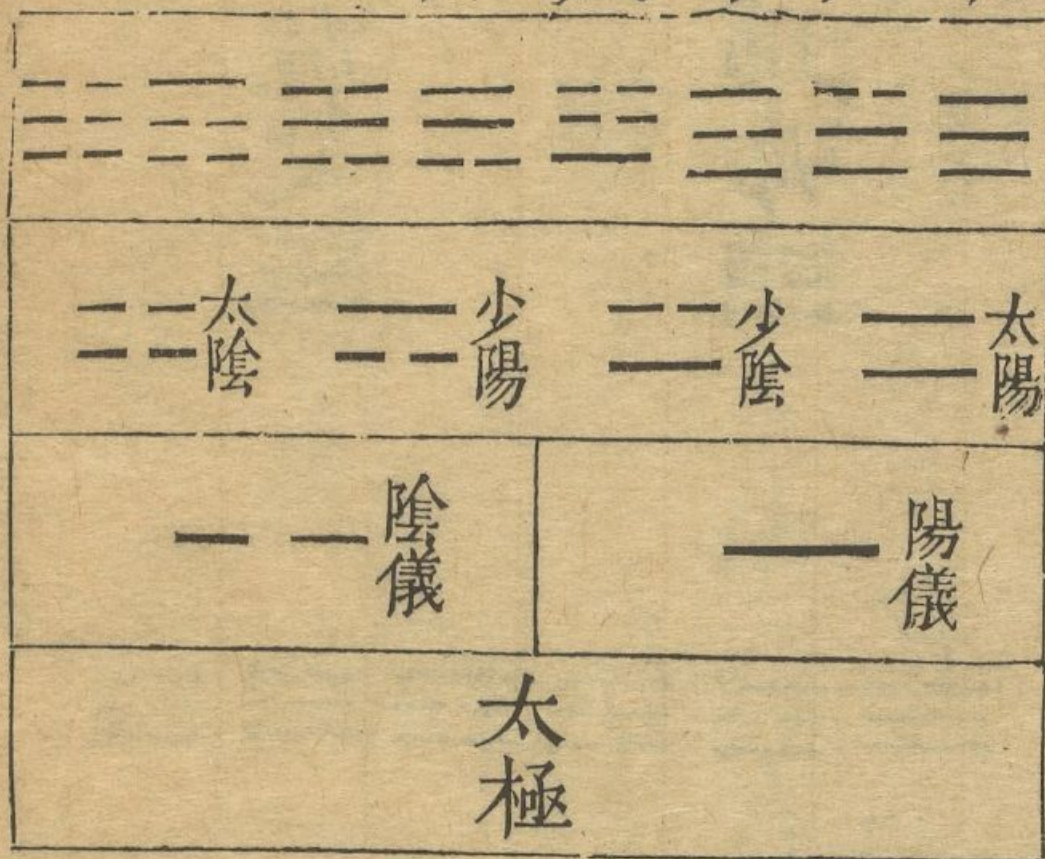 太陽
少陰
少陽
太陰
陽儀
陰儀
太極